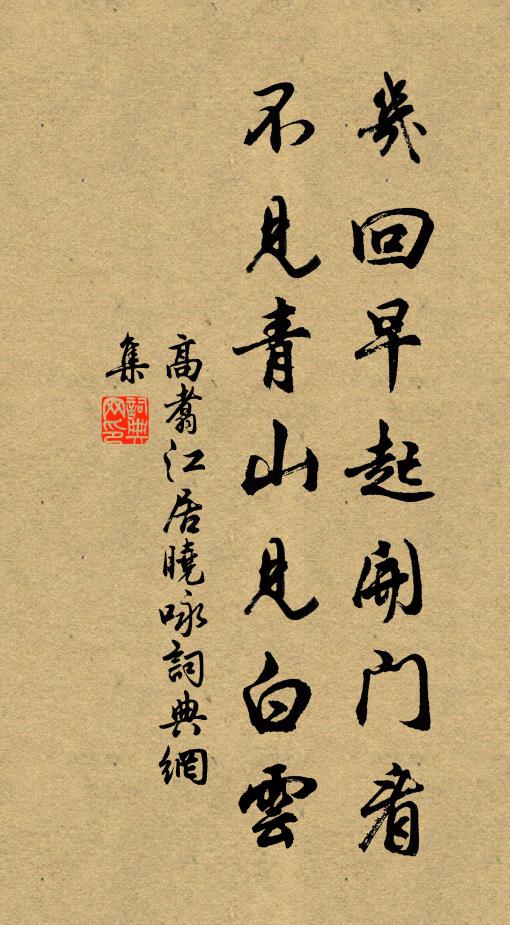 幾回早起開门看
不見青山見白雲
高翥江居曉咏詞典網
集
詞典
网印